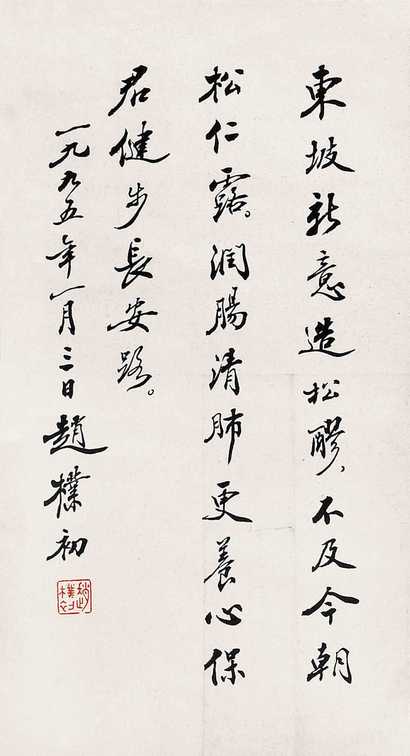 東坡新意造松醪，不及今朝
松仁露。潤腸清肺更養心保
君健步長安路。
一九九五年一月三日趙樸初
趙樸初